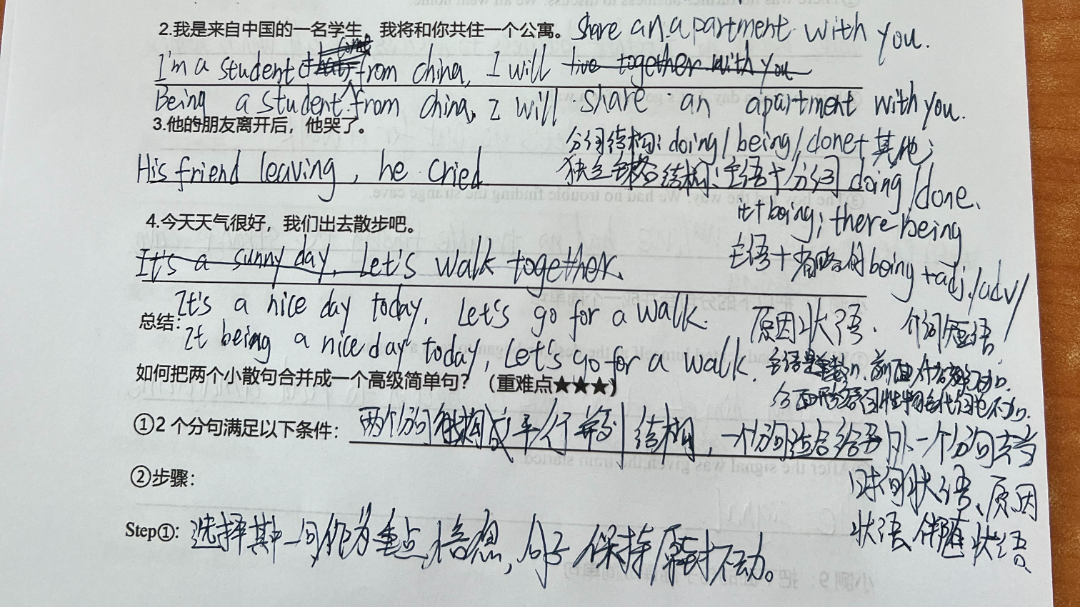 2.我是来自中国的一名学生，我将和你共住一个公寓。share an apartment with you.
I'm a student from china, I will live together with you
Being a student from china, I will share an apartment with you.
3.他的朋友离开后，他哭了。
分词结构: doing/being/done+其他;
His friend leaving, he cried
独立主格结构: 主语+分词 doing/done.
it+being; there being
4.今天天气很好，我们出去散步吧。
主语+省略的being+adj./adv/
It's a sunny day, Let's walk together.
介词短语.
It's a nice day today, Let's go for a walk.
原因状语.
总结：
It being a nice day today, Let's go for a walk.
如何把两个小散句合并成一个高级简单句？（重难点★★★）
①2个分句满足以下条件：两个分句能构成平行并列结构，一个分句适合给另外一个分句去当
时间状语、原因
状语、伴随状语
②步骤：
Step①: 选择其中一句作为重点信息，句子保持原封不动。